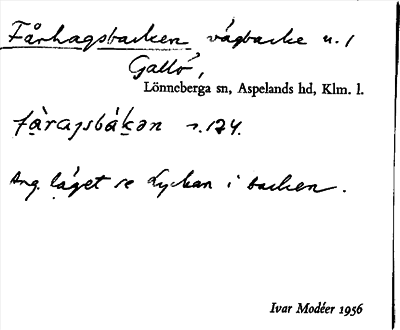 Fårhagsbacken vägbacke n. 1
Galtö,
Lönneberga sn, Aspelands hd, Klm. l.
fàragsbákən s. 124.
Ang. läget se Lyckan i backen.
Ivar Modéer 1956